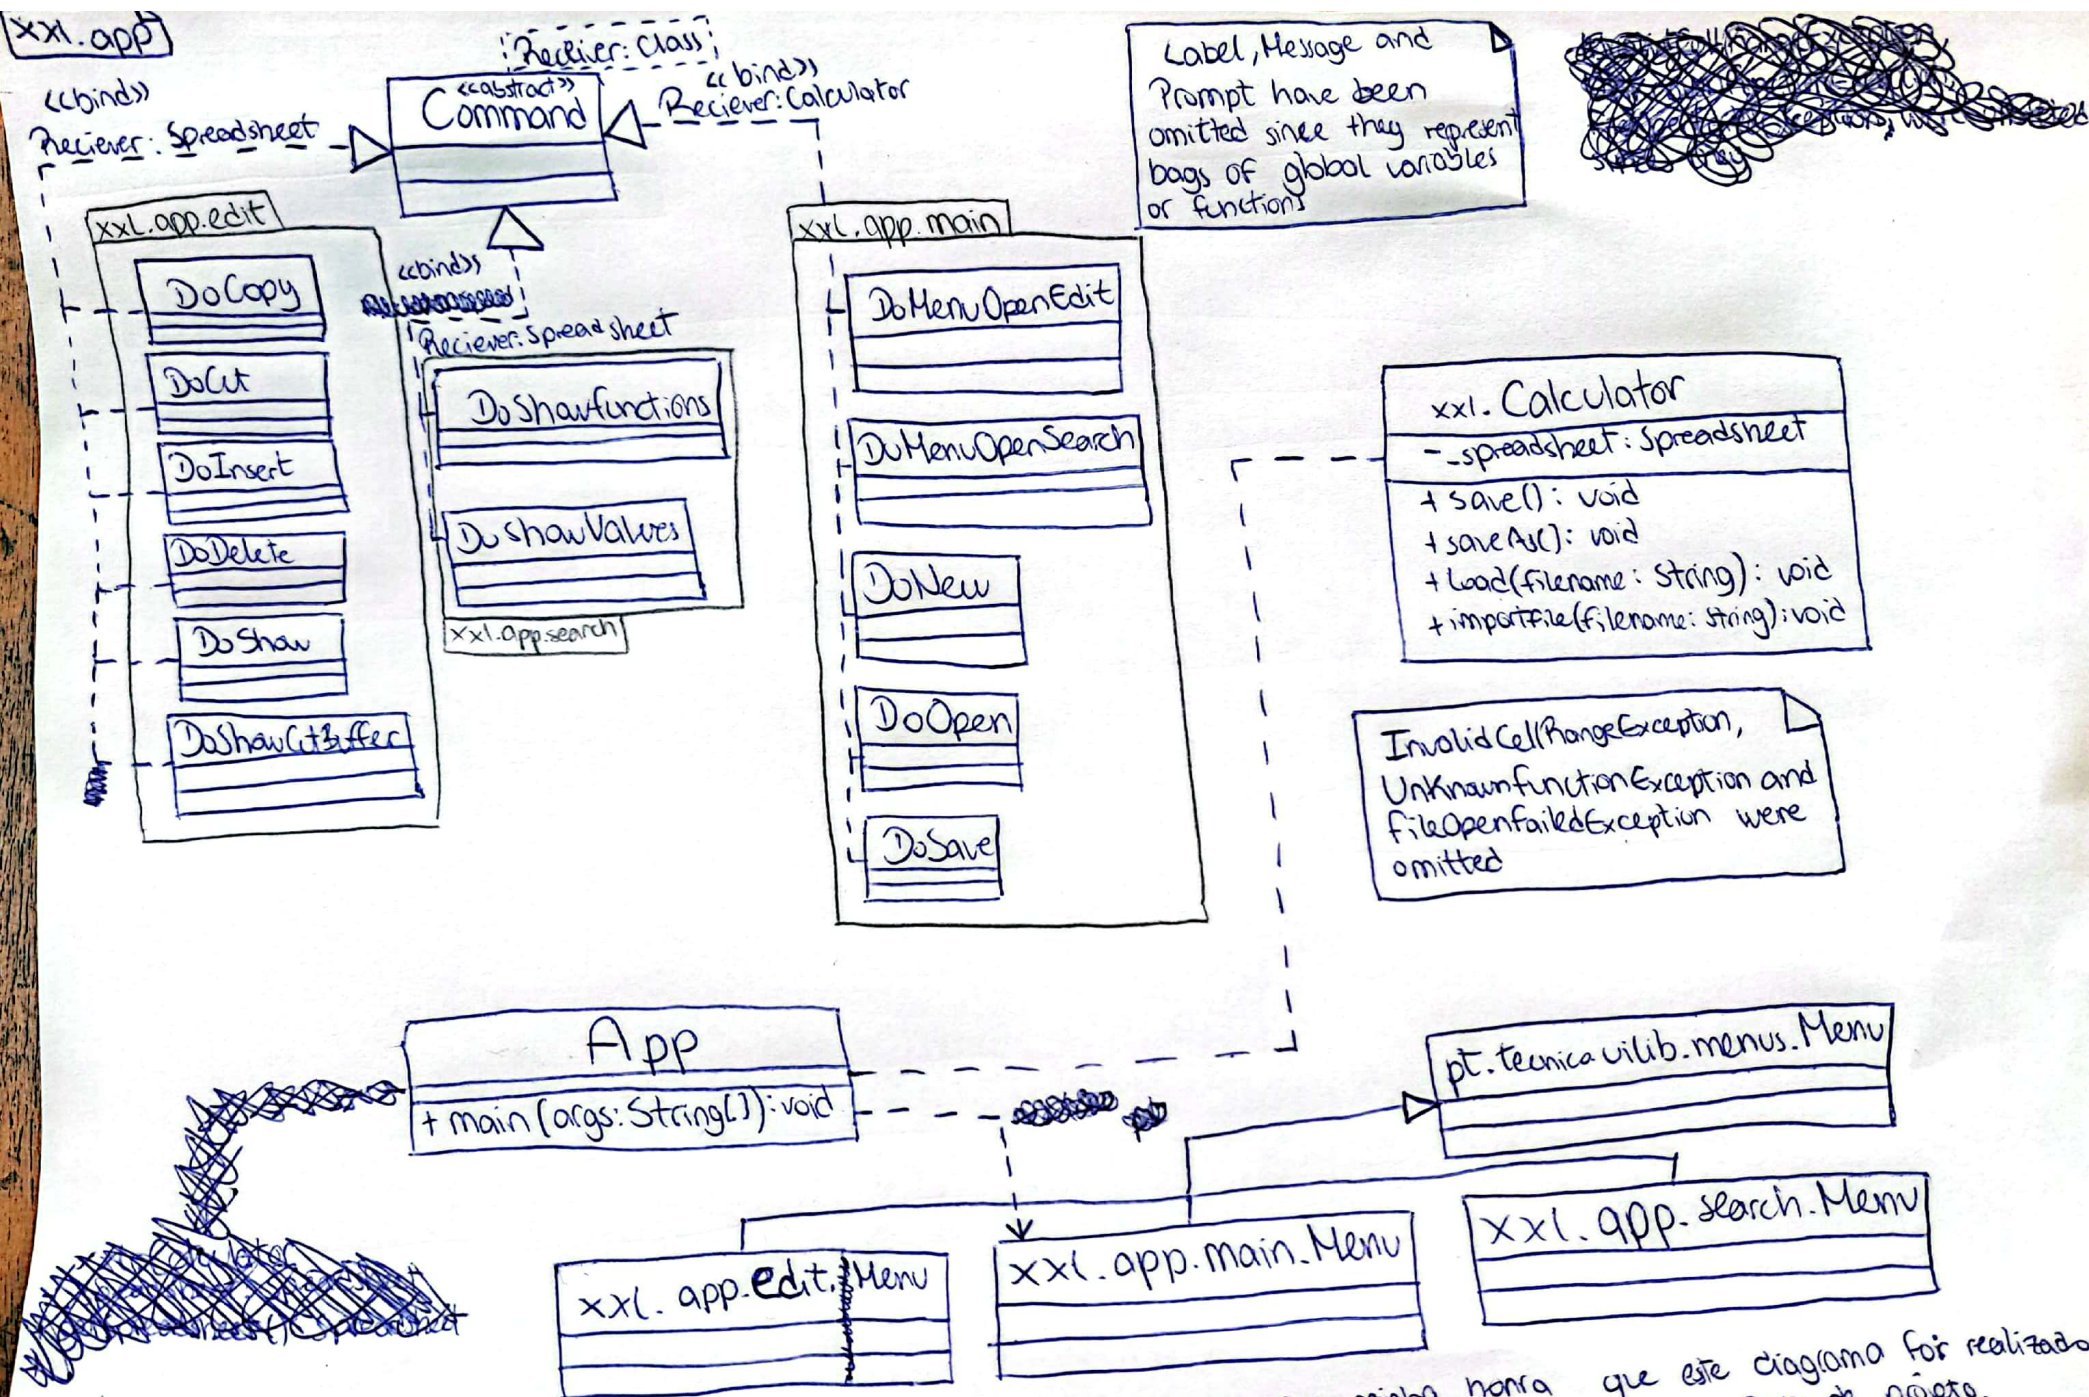 xxl.app
<<bind>>
Reciever: Spreadsheet
Reciever: Class
<<abstract>>
Command
<<bind>>
Reciever: Calculator
Label, Message and
Prompt have been
omitted since they represent
bags of global variables
or functions
xxl.app.edit
DoCopy
DoCut
DoInsert
DoDelete
DoShow
DoShowCutBuffer
<<bind>>
Reciever: Spreadsheet
DoShowFunctions
DoShowValues
xxl.app.search
xxl.app.main
DoMenuOpenEdit
DoMenuOpenSearch
DoNew
DoOpen
DoSave
xxl.Calculator
-_spreadsheet: Spreadsheet
+ save(): void
+ saveAs(): void
+ load(filename: String): void
+ importFile(filename: String): void
InvalidCellRangeException,
UnknownFunctionException and
FileOpenFailedException were
omitted
App
+ main(args: String[]): void
pt.tecnico.uilib.menus.Menu
xxl.app.edit.Menu
xxl.app.main.Menu
xxl.app.search.Menu
minha honra que este diagrama foi realizado
projeto.